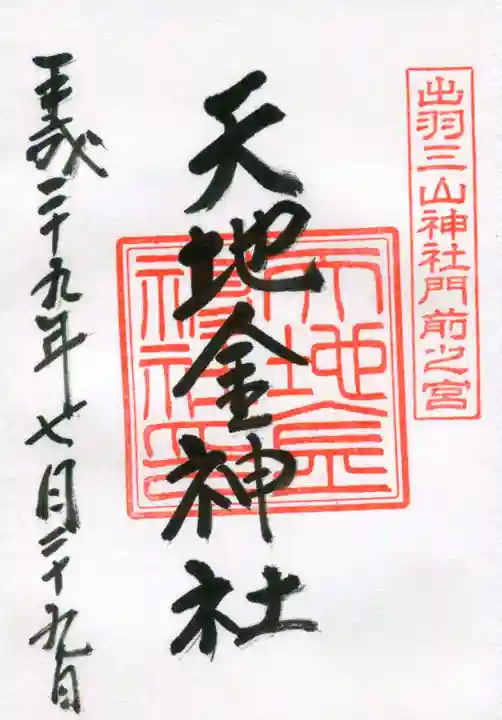 出羽三山神社門前之宮
天地金神社
天地金
神社印
平成二十九年七月二十九日